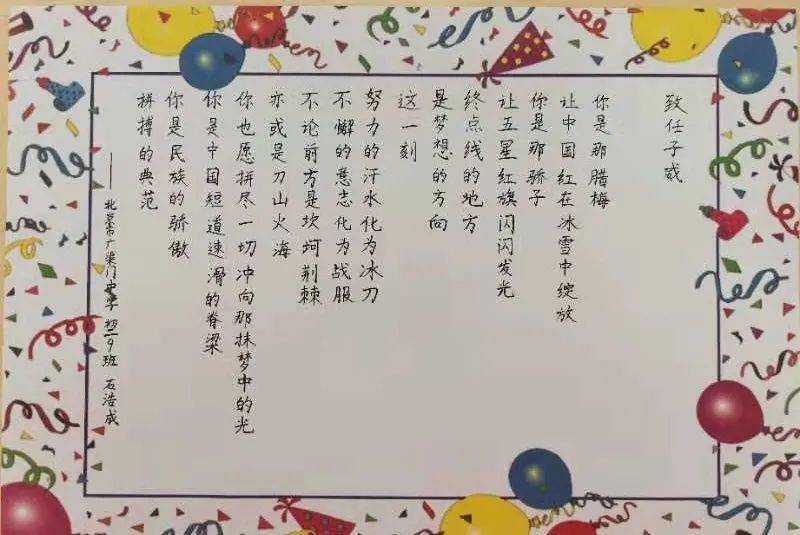 致任子威
你是那腊梅
让中国红在冰雪中绽放
你是那骄子
让五星红旗闪闪发光
终点线的地方
是梦想的方向
这一刻
努力的汗水化为冰刀
不懈的意志化为战服
不论前方是坎坷荆棘
亦或是刀山火海
你也愿拼尽一切冲向那抹梦中的光
你是中国短道速滑的脊梁
你是民族的骄傲
拼搏的典范
——北京市广渠门中学 初一9班 石浩成